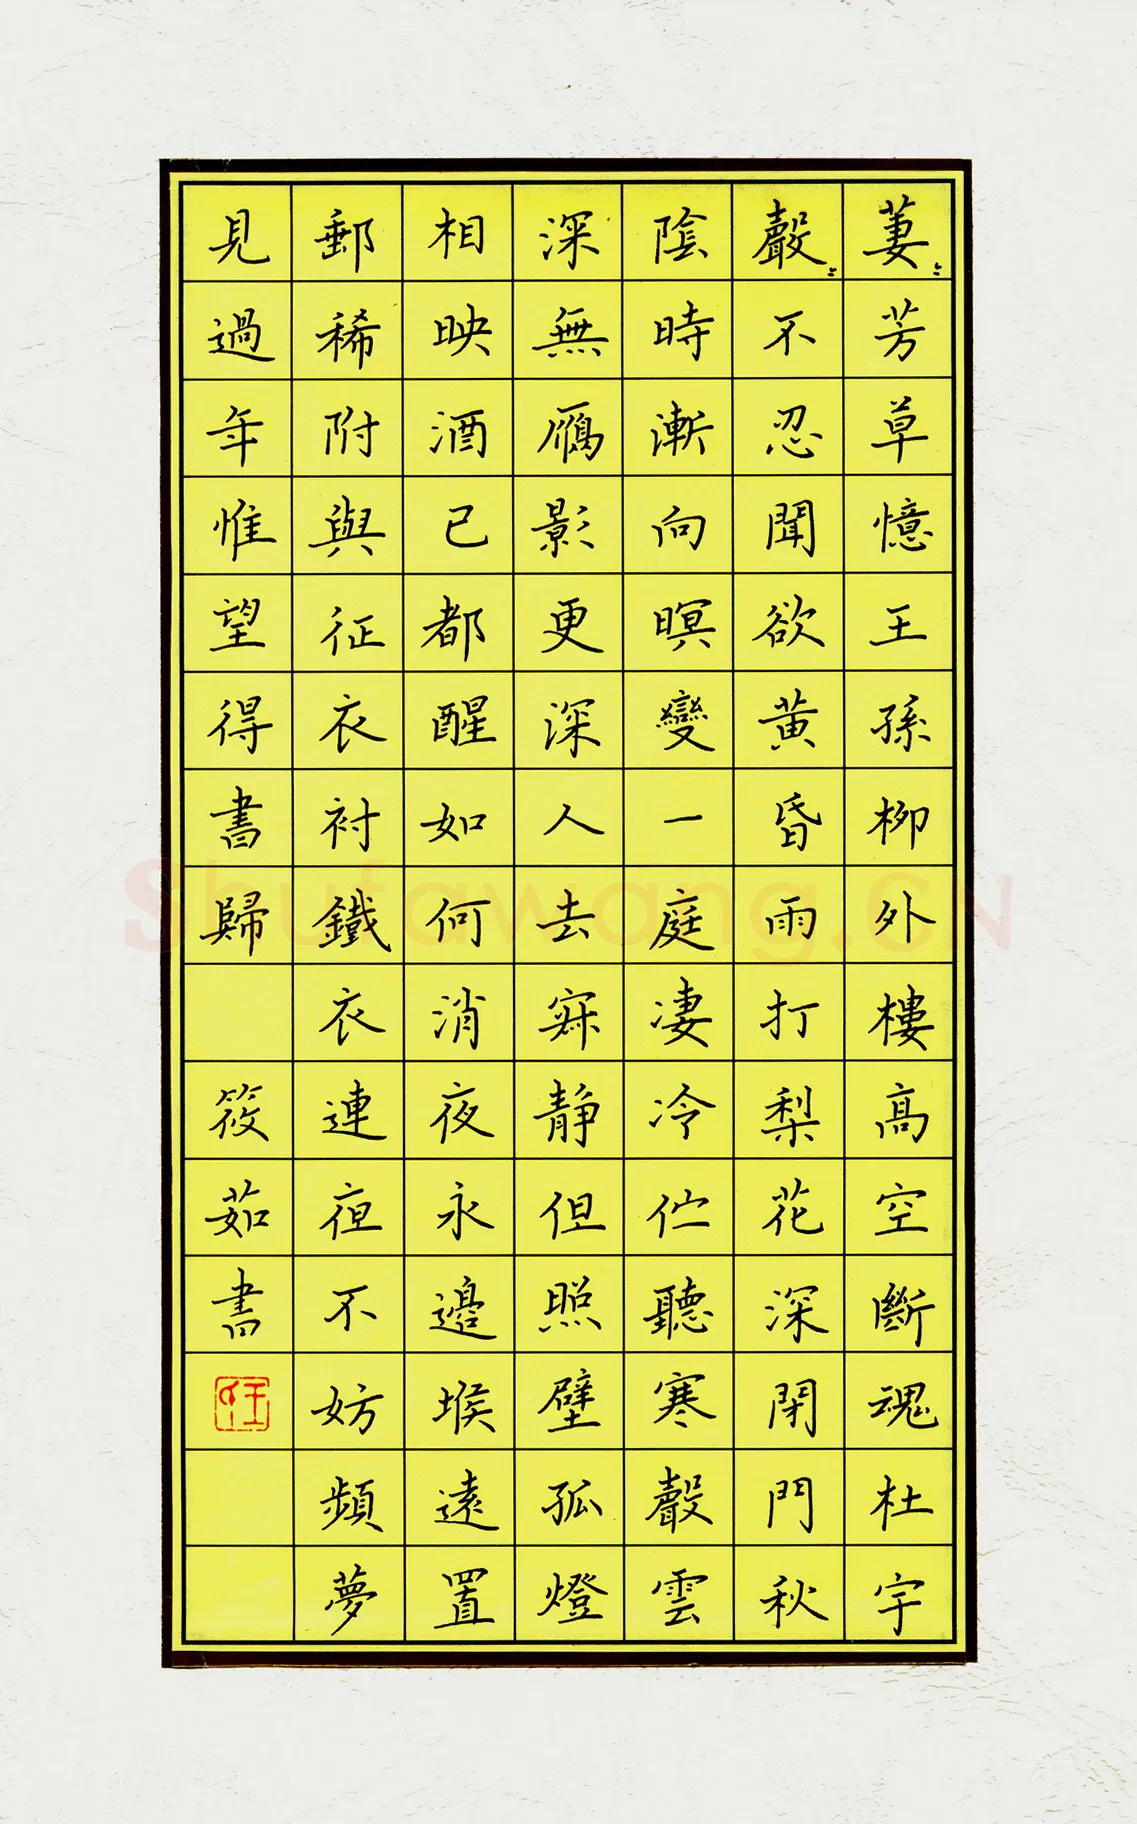 萋〻芳草憶王孫柳外樓高空斷魂杜宇
聲〻不忍聞欲黃昏雨打梨花深閉門秋
陰時漸向暝變一庭凄冷伫聽寒聲雲
深無鴈影更深人去寂靜但照壁孤燈
相映酒已都醒如何消夜永邊堠遠置
郵稀附與征衣衬鐵衣連夜不妨頻夢
見過年惟望得書歸 筱茹書
Shufawang.CN